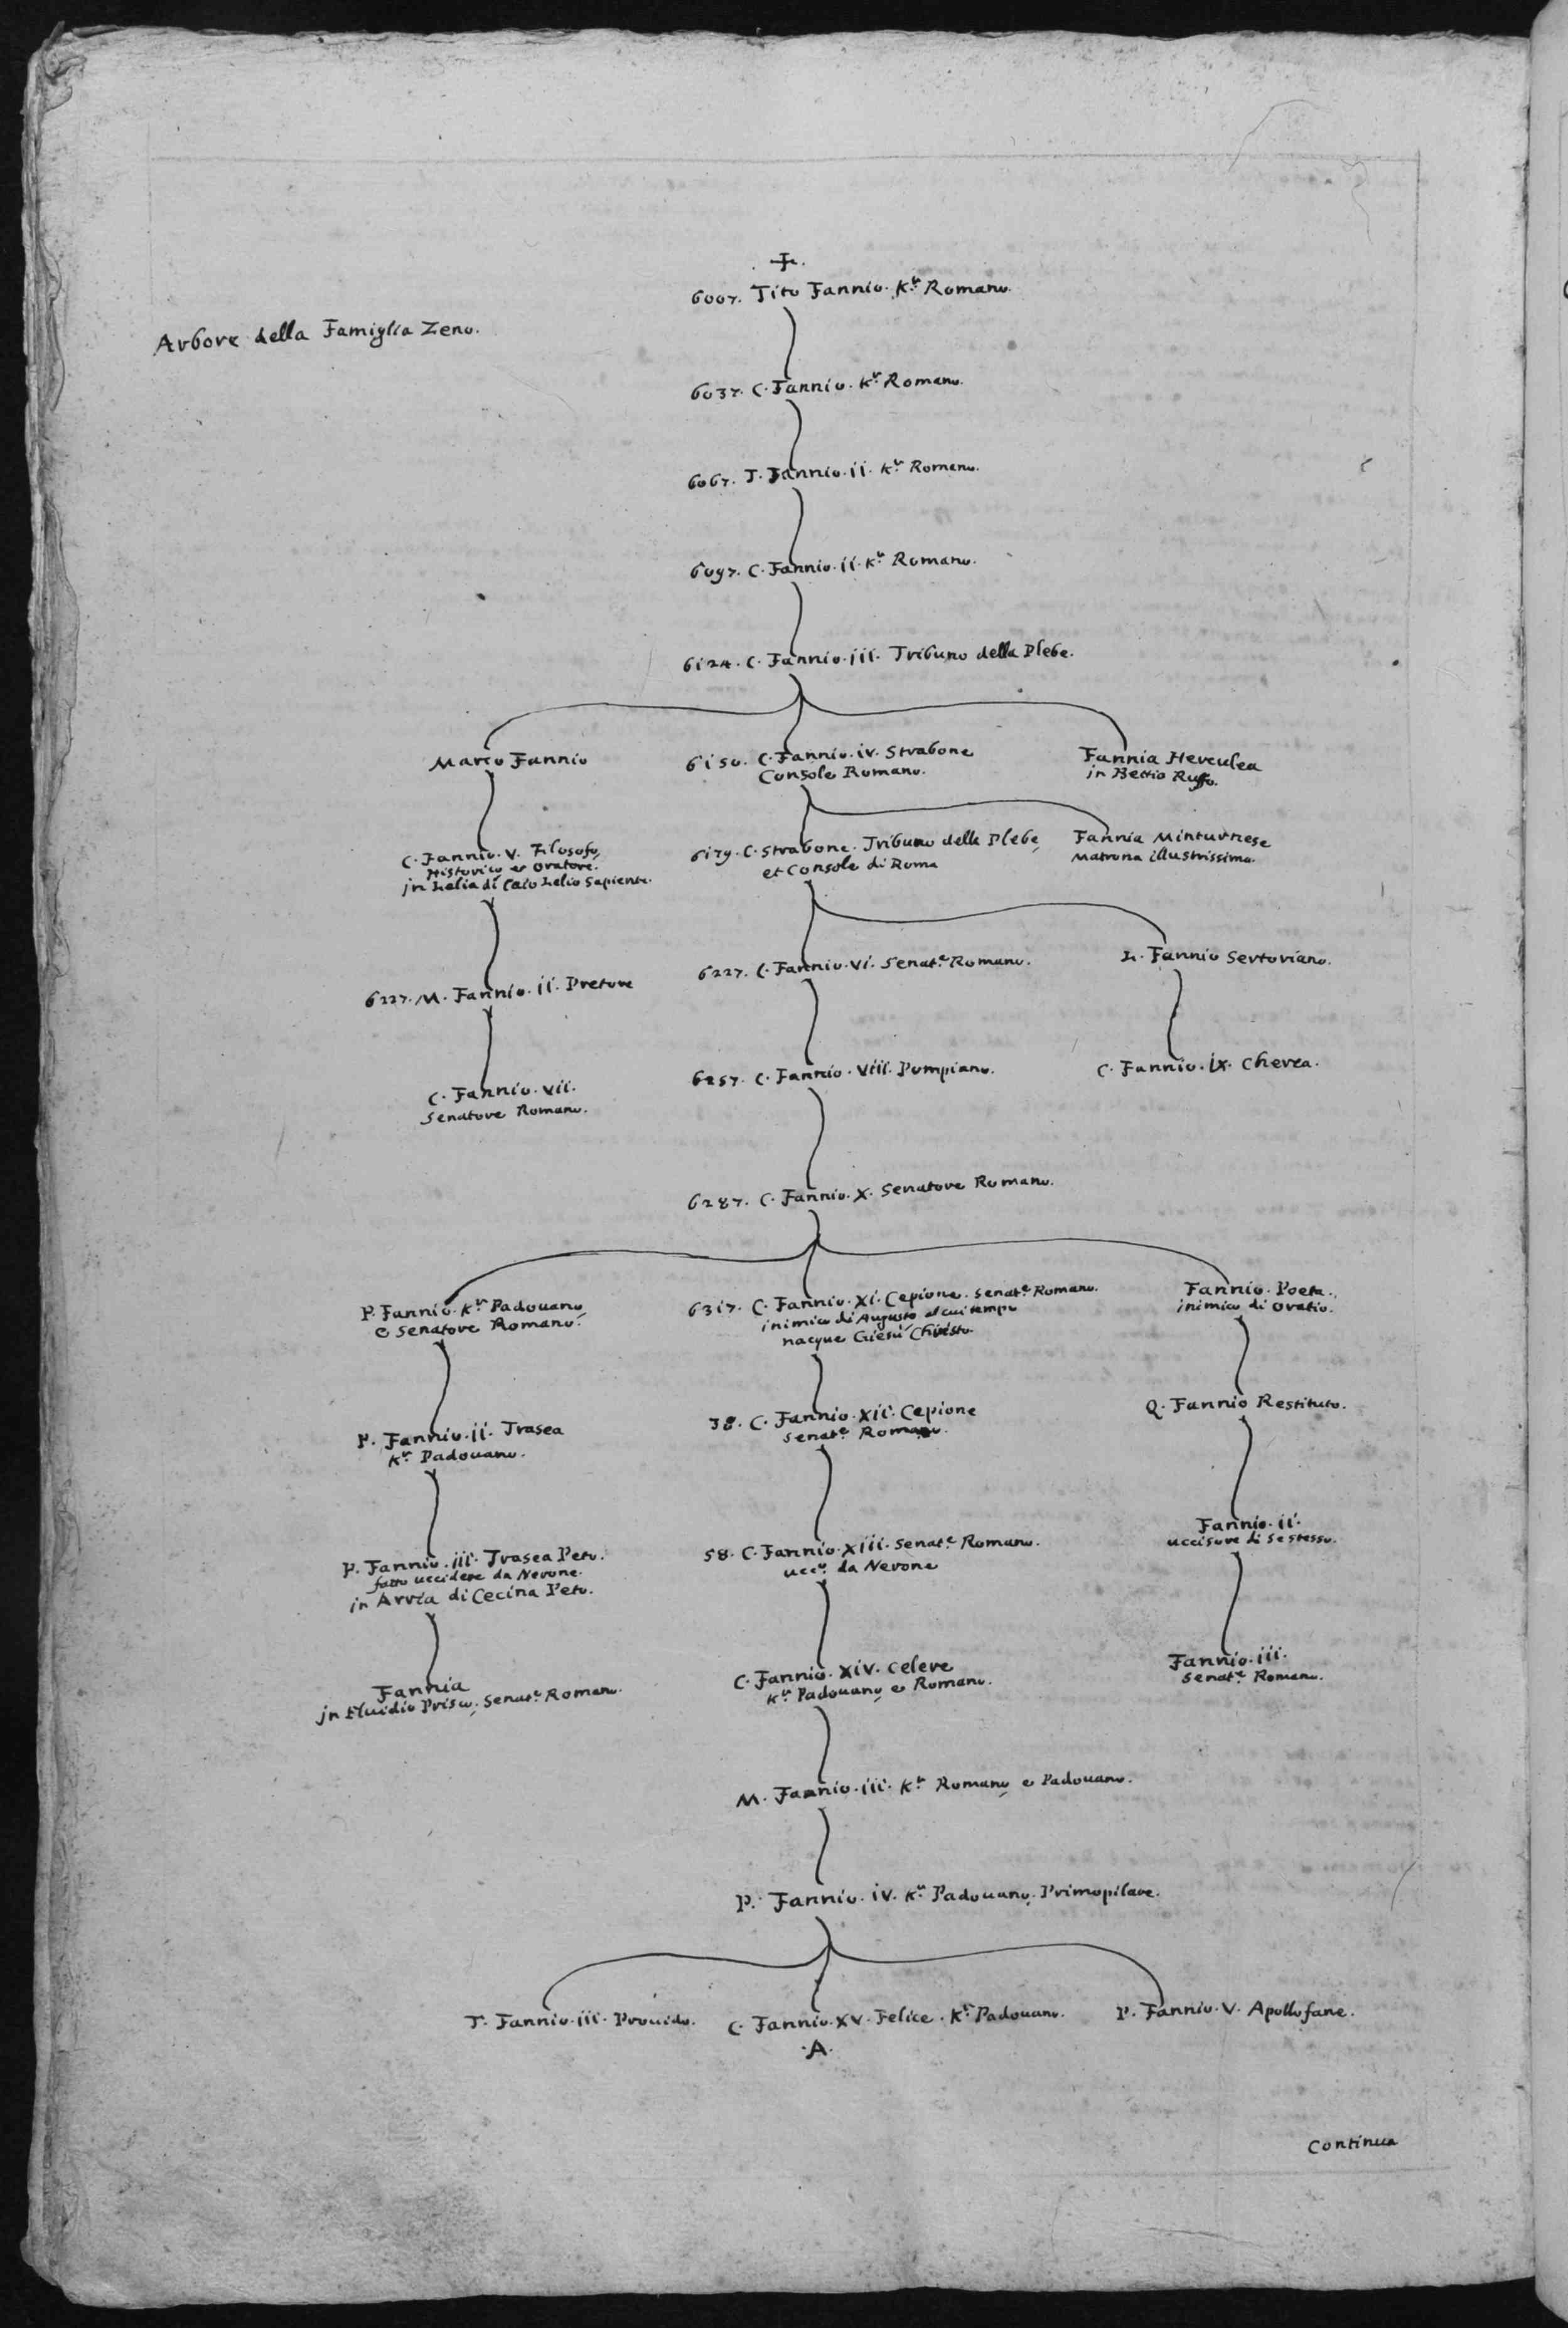 6007. Tito Fannio. Kr. Romano.
Arbore della Famiglia Zeno.
6037. C. Fannio. Kr. Romano.
6067. T. Fannio. ii. Kr. Romano.
6097. C. Fannio. ii. Kr. Romano.
6124. C. Fannio. iii. Tribuno della Plebe.
Marco Fannio
6150. C. Fannio. iv. Strabone
Console Romano.
Fannia Herculea
in Bettio Ruffo.
C. Fannio. V. Filosofo,
Historico, et oratore.
in Lelia di Caio Lelio Sapiente.
6179. C. Strabone. Tribuno della Plebe,
et Console di Roma
Fannia Minturnese
Matrona illustrissima.
6227. M. Fannio. ii. Pretore
6227. C. Fannio. Vi. Senate. Romano.
L. Fannio Sertoriano.
C. Fannio. vii.
Senatore Romano.
6257. C. Fannio. Viii. Pompiano.
C. Fannio. ix. Cherea.
6287. C. Fannio. X. Senatore Romano.
P. Fannio. Kr. Padouano,
e Senatore Romano.
6317. C. Fannio. Xi. Cepione. Senate. Romano.
inimico di Augusto, al cui tempo
nacque Giesù Christo.
Fannio. Poeta.
inimico di oratio.
P. Fannio. ii. Trasea
Kr. Padouano.
38. C. Fannio. Xii. Cepione
Senate. Romano.
Q. Fannio Restituto.
P. Fannio. iii. Trasea Peto.
fatto uccidere da Nerone.
in Arria di Cecina Peto.
58. C. Fannio. Xiii. Senate. Romano.
ucco. da Nerone
Fannio. ii.
uccisore di se stesso.
Fannia
in Eluidio Prisco, Senate. Romano.
C. Fannio. Xiv. Celere
Kr. Padouano, e Romano.
Fannio. iii.
Senate. Romano.
M. Fannio. iii. Kr. Romano, e Padouano.
P. Fannio. iv. Kr. Padouano, Primopilare.
T. Fannio. iii. Prouido.
C. Fannio. XV. Felice. Kr. Padouano.
.A.
P. Fannio. V. Apollofane.
Continua